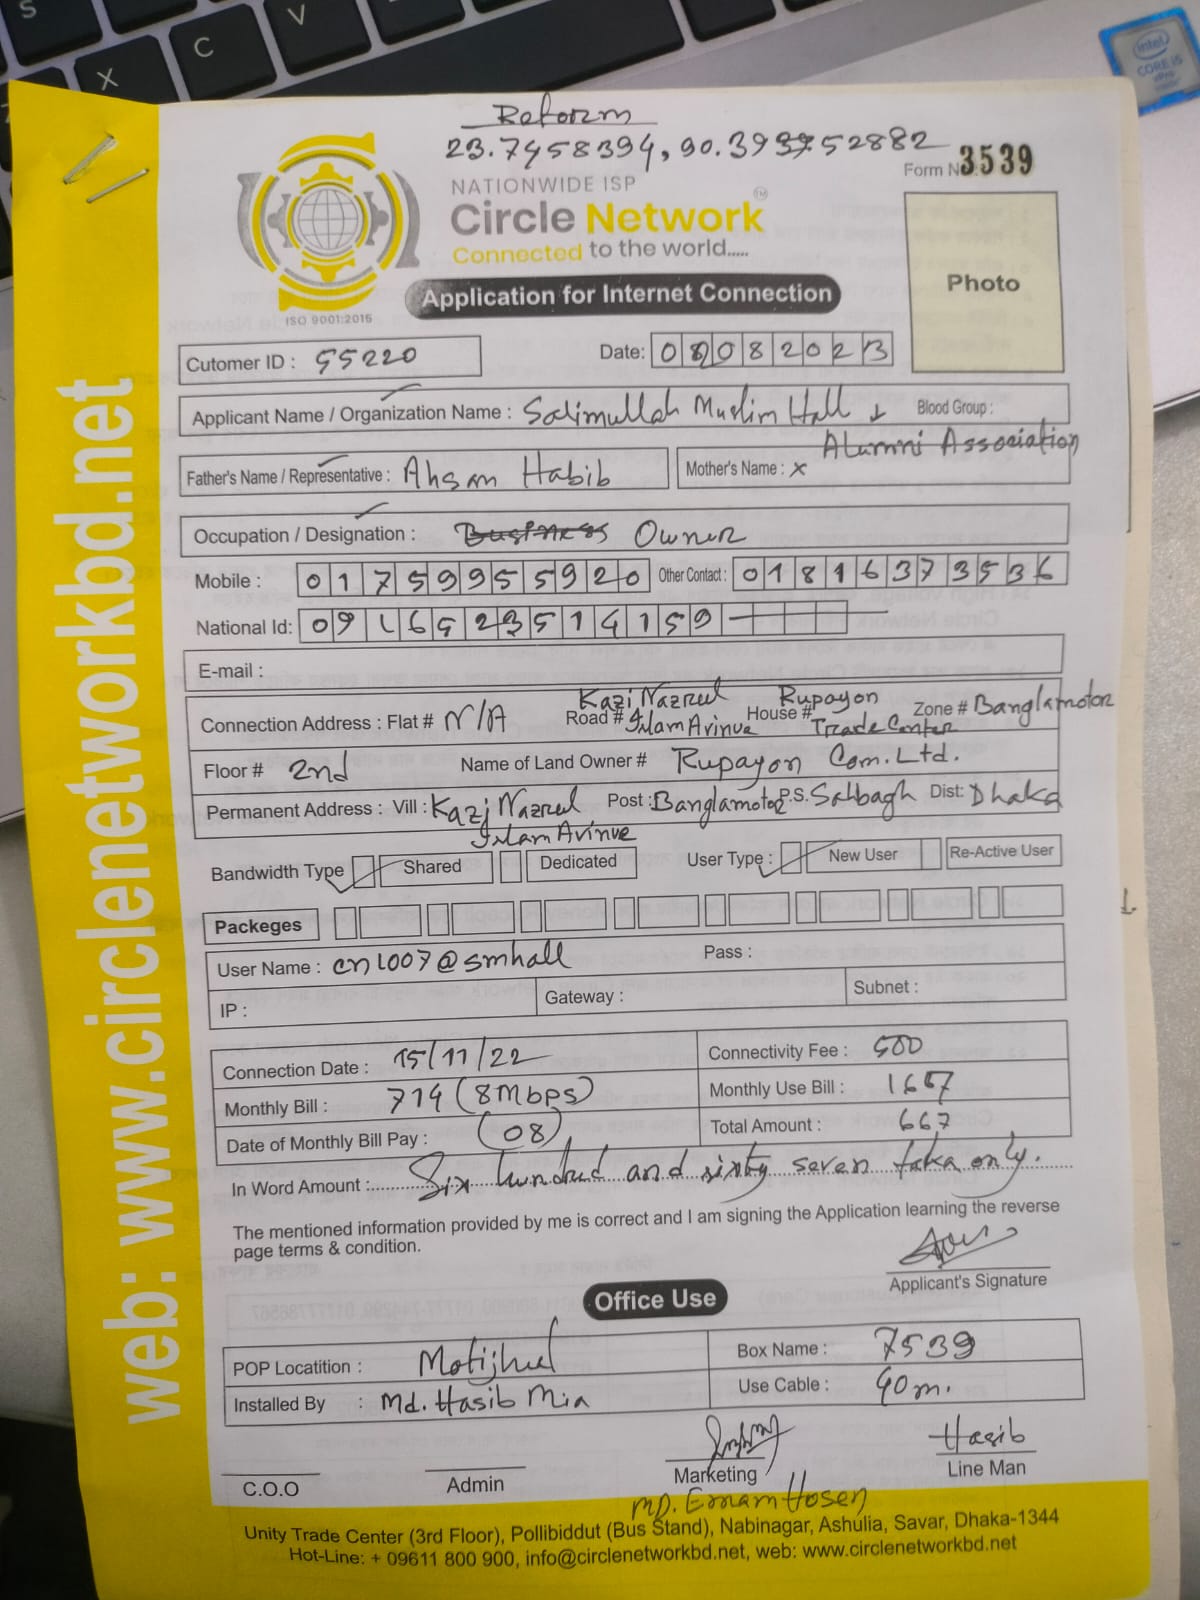 Reform
23.7458394, 90.3939252882
Form No 3539
NATIONWIDE ISP
Circle Network TM
Connected to the world.....
ISO 9001:2015
Application for Internet Connection
Photo
Cutomer ID : 55220 Date: 08082023
Applicant Name / Organization Name : Salimullah Muslim Hall Blood Group :
Alumni Association
Father's Name / Representative : Ahsan Habib Mother's Name : x
Occupation / Designation : Business Owner
Mobile : 01759955920 Other Contact : 01816373536
National Id:
E-mail :
Connection Address : Flat # N/A Road # Kazi Nazrul Islam Avinue House # Rupayon Trade Center Zone # Banglamotor
Floor # 2nd Name of Land Owner # Rupayon Com. Ltd.
Permanent Address : Vill : Kazi Nazrul Islam Avinue Post : Banglamotor P.S. Sahbagh Dist: Dhaka
Bandwidth Type Shared Dedicated User Type : New User Re-Active User
Packeges
User Name : cnl007@smhall Pass :
IP : Gateway : Subnet :
Connection Date : 15/11/22 Connectivity Fee : 500
Monthly Bill : 714 (8Mbps) Monthly Use Bill : 167
Date of Monthly Bill Pay : (08) Total Amount : 667
In Word Amount : Six hundred and sixty seven taka only.
The mentioned information provided by me is correct and I am signing the Application learning the reverse
page terms & condition.
Applicant's Signature
Office Use
POP Locatition : Motijheel Box Name : 7539
Installed By : Md. Hasib Mia Use Cable : 90m.
Hasib
C.O.O Admin Marketing Line Man
MD. Emam Hosen
Unity Trade Center (3rd Floor), Pollibiddut (Bus Stand), Nabinagar, Ashulia, Savar, Dhaka-1344
Hot-Line: + 09611 800 900, info@circlenetworkbd.net, web: www.circlenetworkbd.net
web: www.circlenetworkbd.net
S
X
C
V
intel
CORE i5
vPro